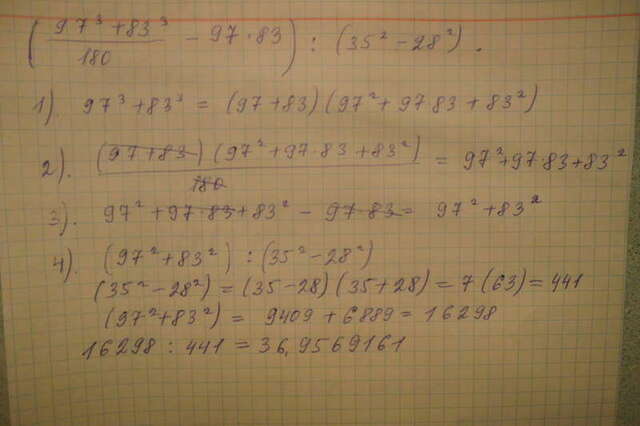 (97³ + 83³ / 180 − 97·83) : (35² − 28²).
1). 97³ + 83³ = (97 + 83)(97² + 97·83 + 83²)
2). (97 + 83)(97² + 97·83 + 83²) / 180 = 97² + 97·83 + 83²
3). 97² + 97·83 + 83² − 97·83 = 97² + 83²
4). (97² + 83²) : (35² − 28²)
(35² − 28²) = (35 − 28)(35 + 28) = 7(63) = 441
(97² + 83²) = 9409 + 6889 = 16298
16298 : 441 = 36,9569161